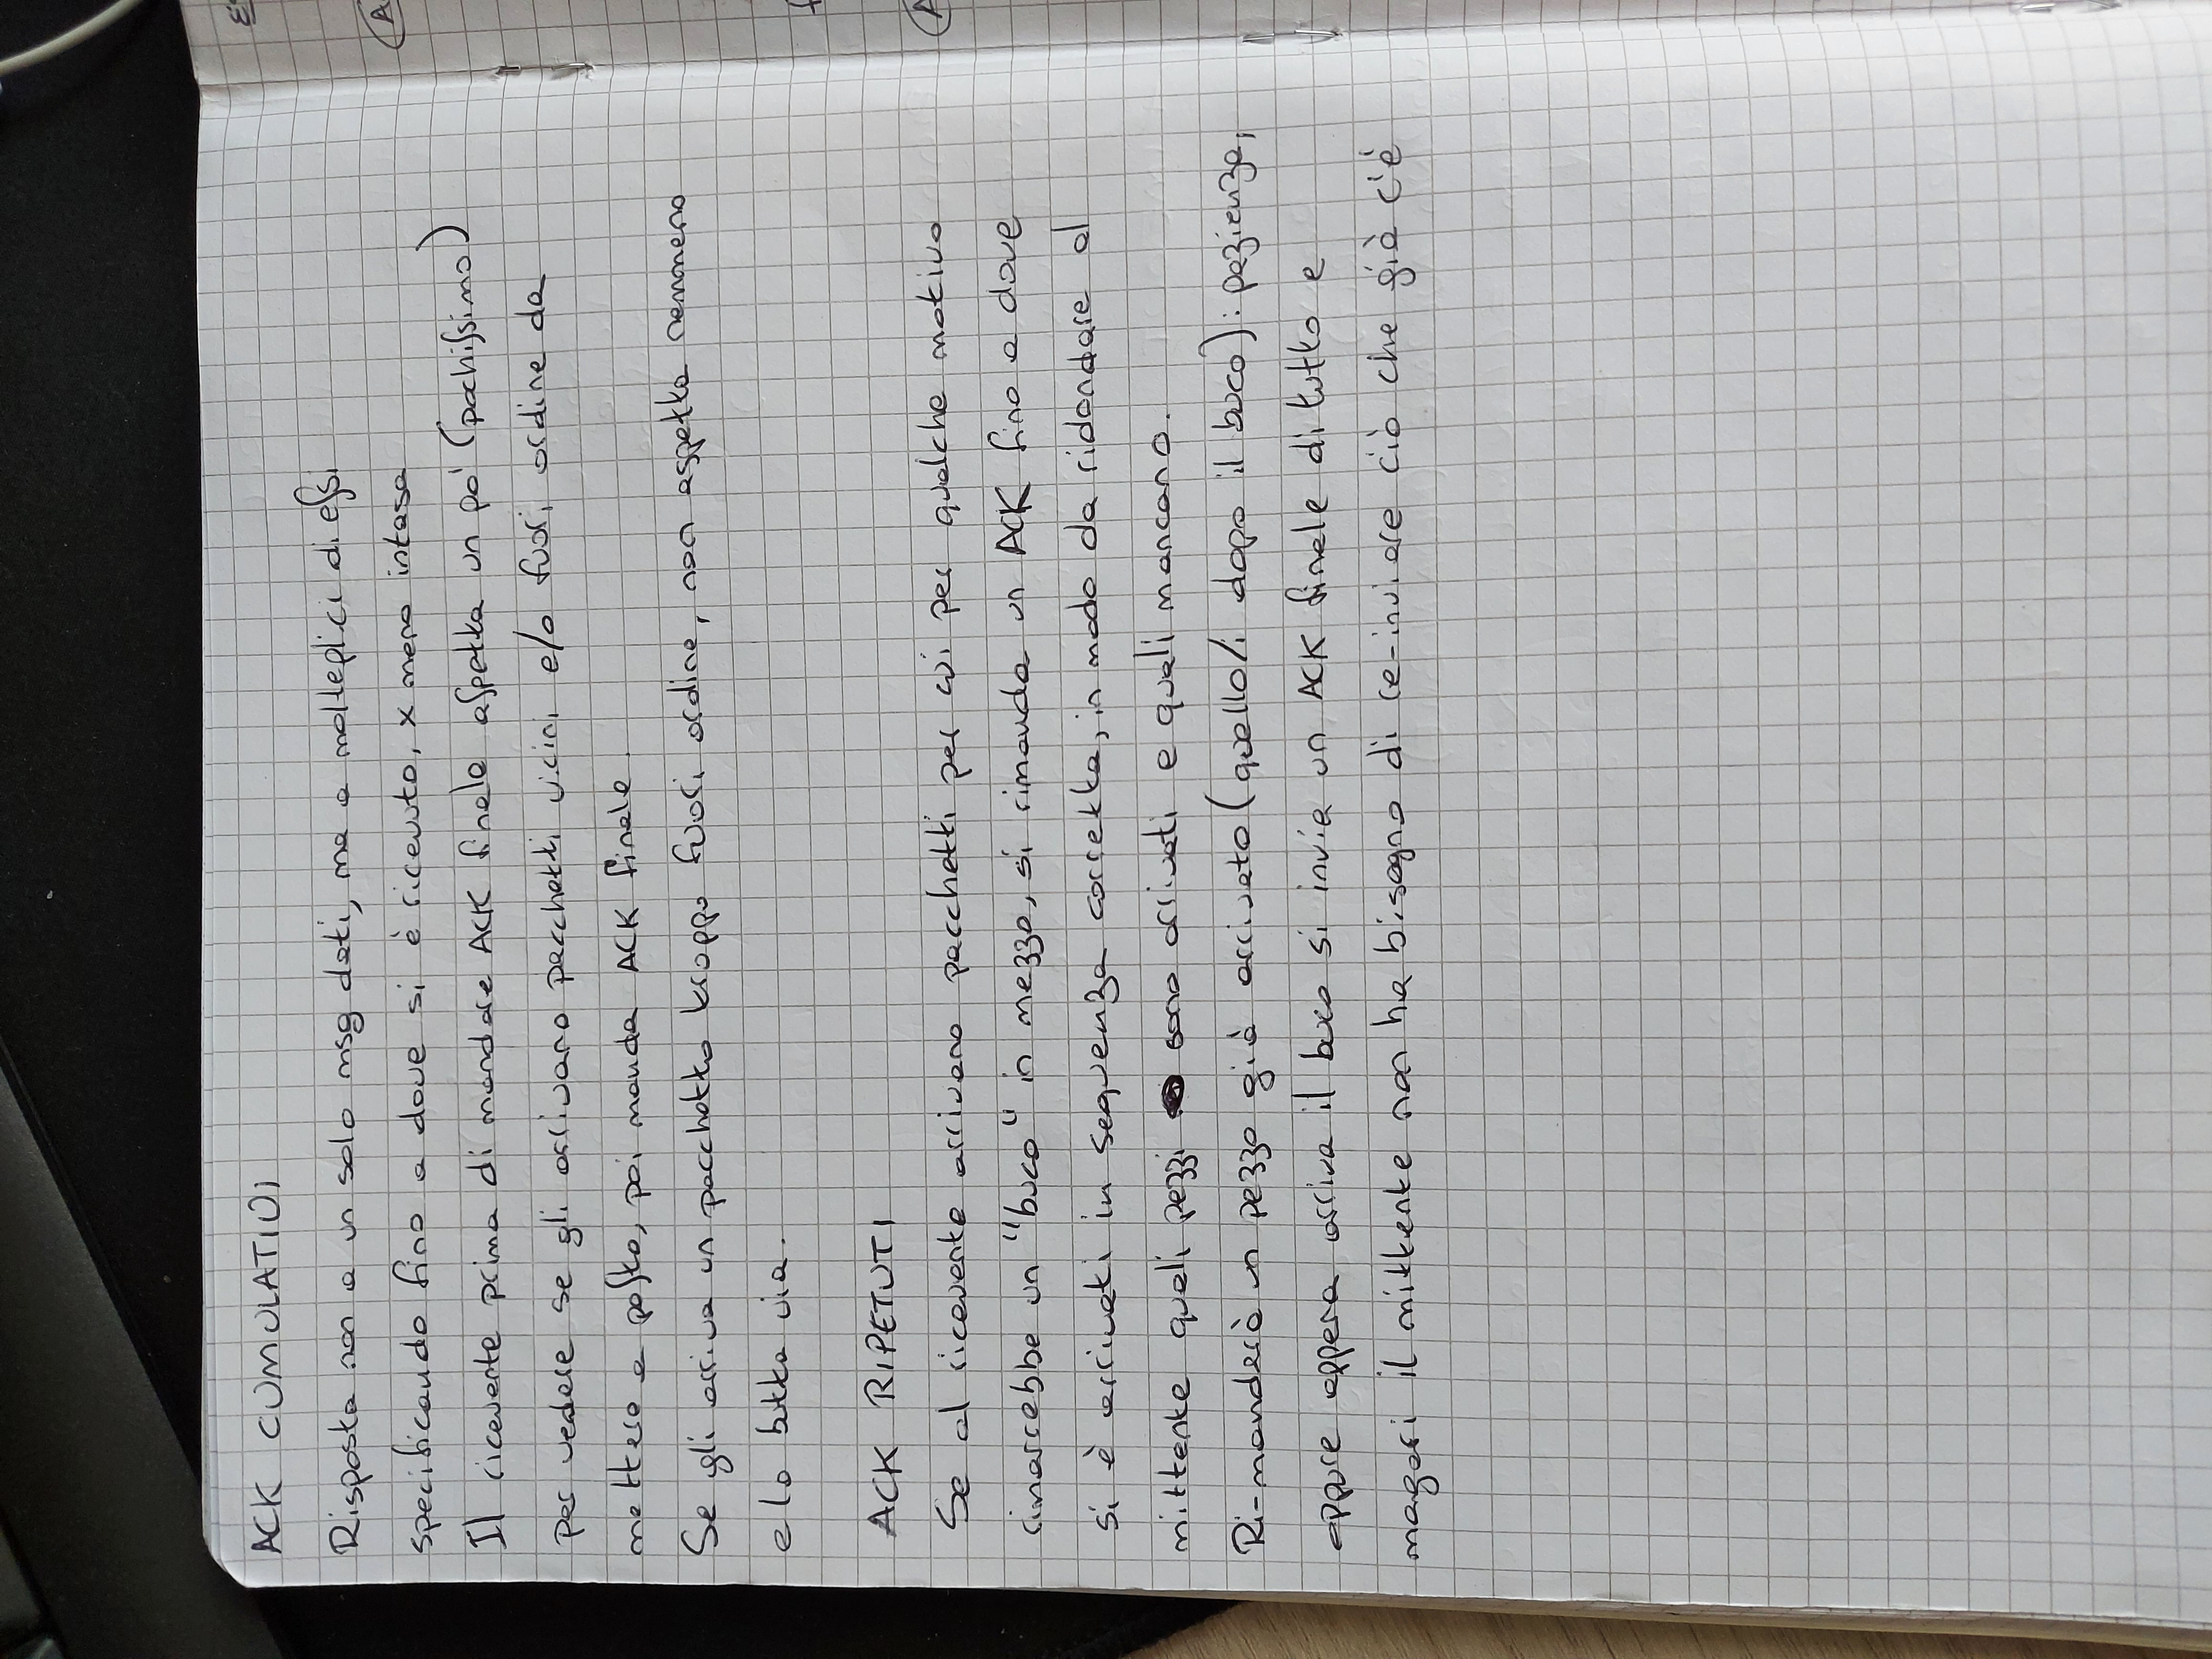 ACK CUMULATIVI
Risposta non a un solo msg dati, ma a molteplici di essi
specificando fino a dove si è ricevuto, x meno intasa
Il ricevente prima di mandare ACK finale aspetta un po' (pochissimo)
per vedere se gli arrivano pacchetti vicini e/o fuori ordine da
mettere a posto, poi manda ACK finale.
Se gli arriva un pacchetto troppo fuori ordine, non aspetta nemmeno
e lo butta via.
ACK RIPETUTI
Se al ricevente arrivano pacchetti per cui per qualche motivo
rimarrebbe un "buco" in mezzo, si rimanda un ACK fino a dove
si è arrivati in sequenza corretta, in modo da ridondare al
mittente quali pezzi sono arrivati e quali mancano.
Ri-manderà un pezzo già arrivato (quello/i dopo il buco): pazienza,
oppure appena arriva il buco si invia un ACK finale di tutto e
magari il mittente non ha bisogno di re-inviare ciò che già c'è